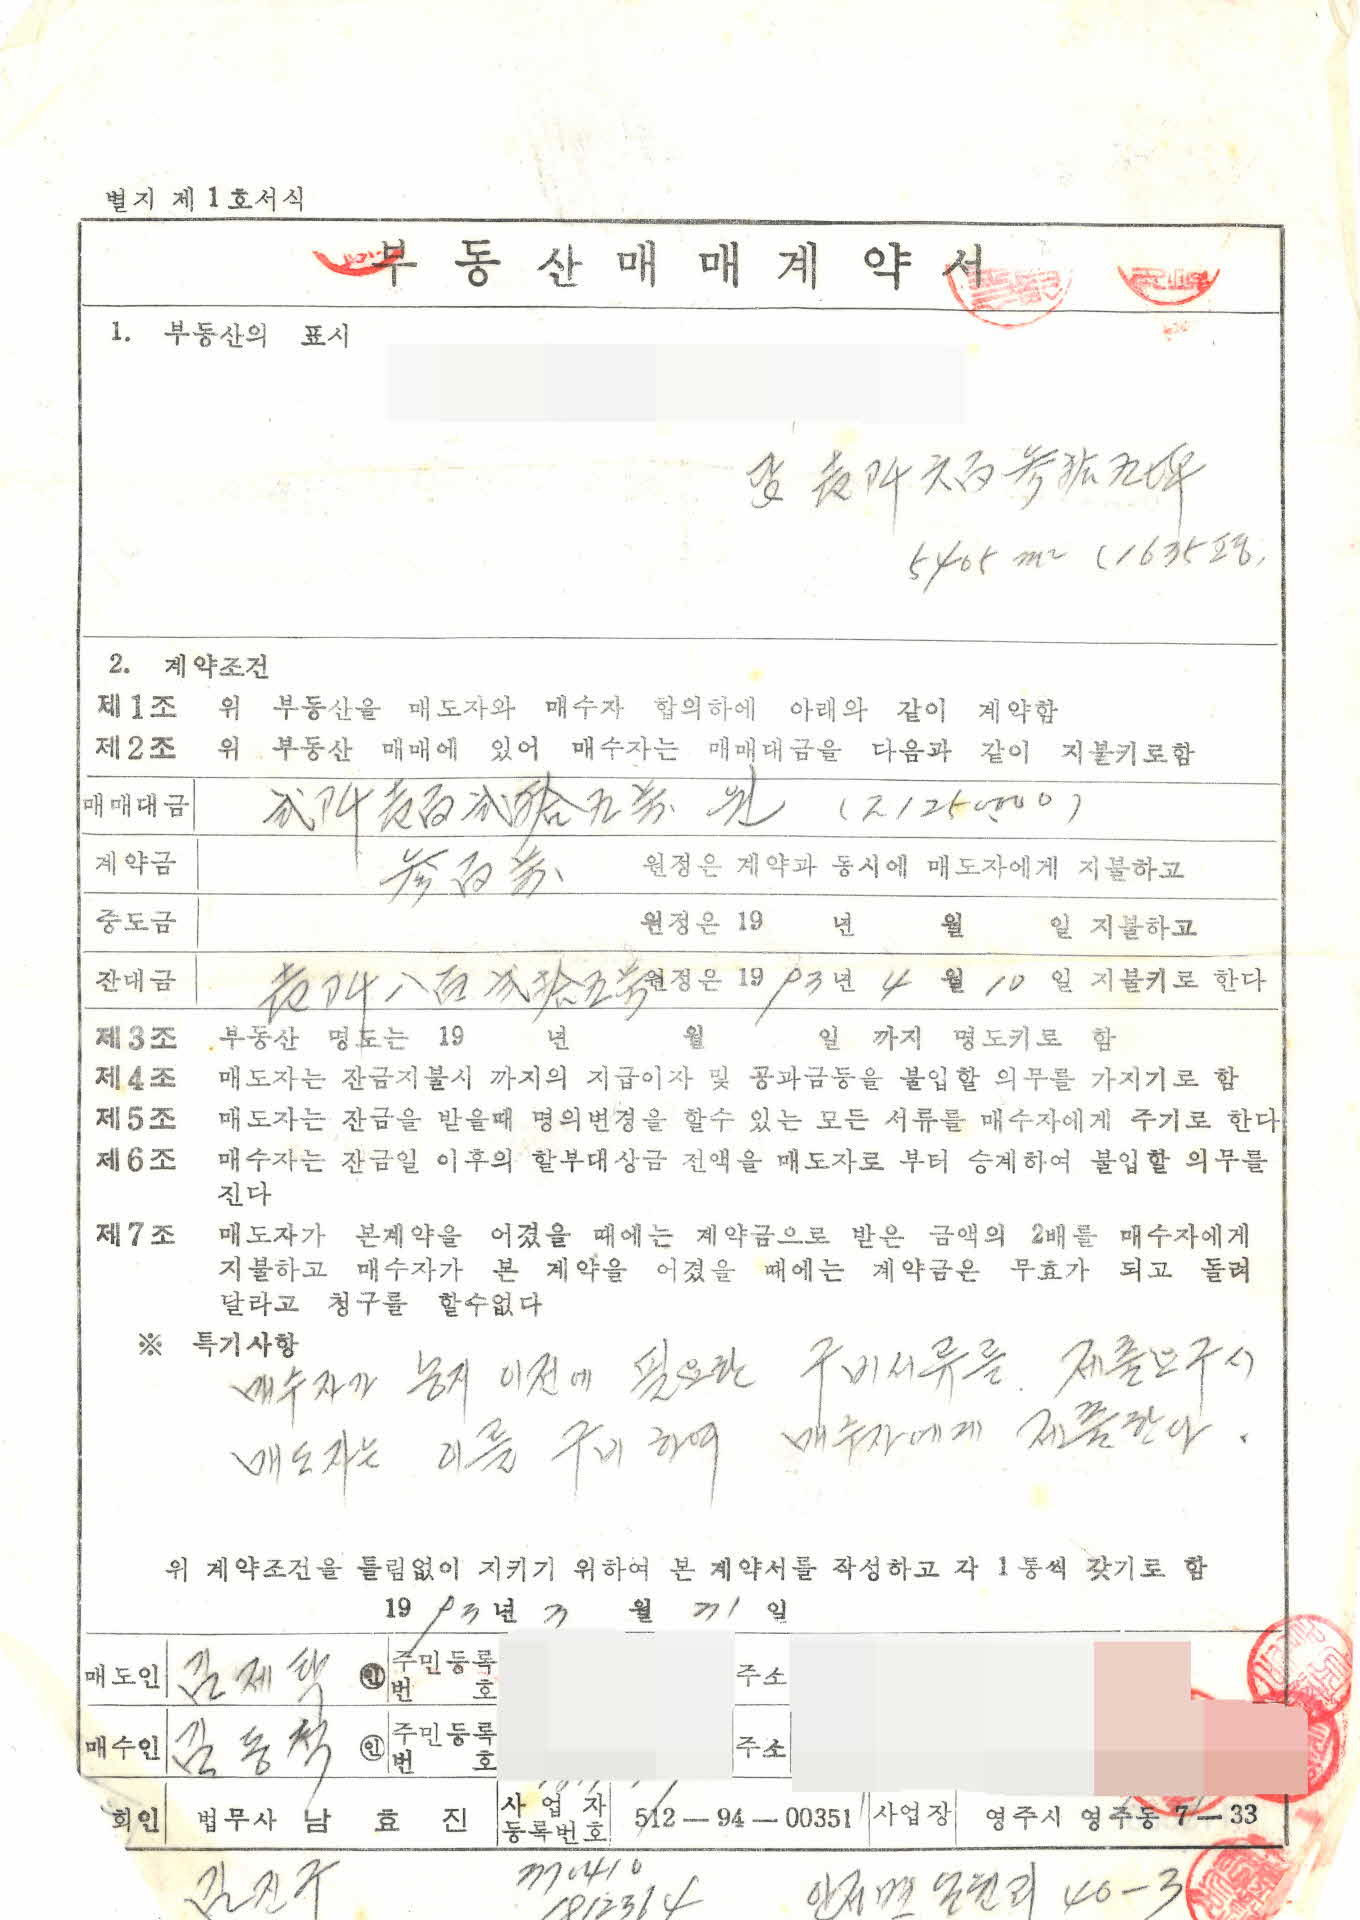 별지 제1호서식
부동산매매계약서
1. 부동산의 표시
壹阡六百參拾五坪
5405 m² (1635평,
2. 계약조건
제1조 위 부동산을 매도자와 매수자 합의하에 아래와 같이 계약함
제2조 위 부동산 매매에 있어 매수자는 매매대금을 다음과 같이 지불키로함
매매대금 貳阡壹百貳拾五萬 원
계약금 參百萬 원정은 계약과 동시에 매도자에게 지불하고
중도금 원정은 19 년 월 일 지불하고
잔대금 壹阡八百貳拾五萬 원정은 1993년 4월 10일 지불키로 한다
제3조 부동산 명도는 19 년 월 일 까지 명도키로 함
제4조 매도자는 잔금지불시 까지의 지급이자 및 공과금등을 불입할 의무를 가지기로 함
제5조 매도자는 잔금을 받을때 명의변경을 할수 있는 모든 서류를 매수자에게 주기로 한다
제6조 매수자는 잔금일 이후의 할부대상금 전액을 매도자로 부터 승계하여 불입할 의무를
진다
제7조 매도자가 본계약을 어겼을 때에는 계약금으로 받은 금액의 2배를 매수자에게
지불하고 매수자가 본 계약을 어겼을 때에는 계약금은 무효가 되고 돌려
달라고 청구를 할수없다
※ 특기사항
매수자가 농지 이전에 필요한 구비서류를 제출요구시
매도자는 이를 구비하여 매수자에게 제출한다.
위 계약조건을 틀림없이 지키기 위하여 본 계약서를 작성하고 각 1통씩 갖기로 함
1993년 3월 31일
매도인 김제택 ㊞ 주민등록번호 주소
매수인 김동척 ㊞ 주민등록번호 주소
회인 법무사 남효진 사업자등록번호 512-94-00351 사업장 영주시 영주동 7-33
김진구 770410 1812364 안정면 일원리 40-3